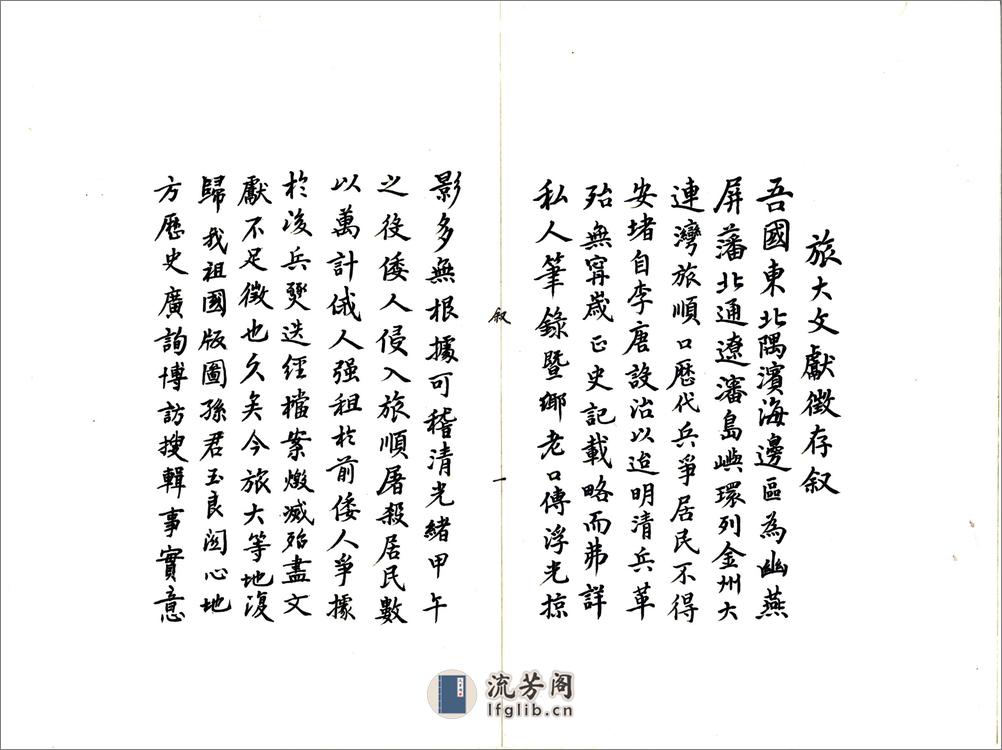 旅大文獻徵存叙
吾國東北隅濱海邊區為幽燕
屏藩北通遼瀋島嶼環列金州大
連灣旅順口歷代兵爭居民不得
安堵自李唐設治以迨明清兵革
殆無寧歲正史記載略而弗詳
私人筆錄暨鄉老口傳浮光掠
叙
一
影多無根據可稽清光緒甲午
之役倭人侵入旅順屠殺居民數
以萬計俄人强租於前倭人爭據
於後兵燹迭經檔案燬滅殆盡文
獻不足徵也久矣今旅大等地復
歸我祖國版圖孫君玉良関心地
方歷史廣詢博訪搜輯事實意
流芳阁
lfglib.cn